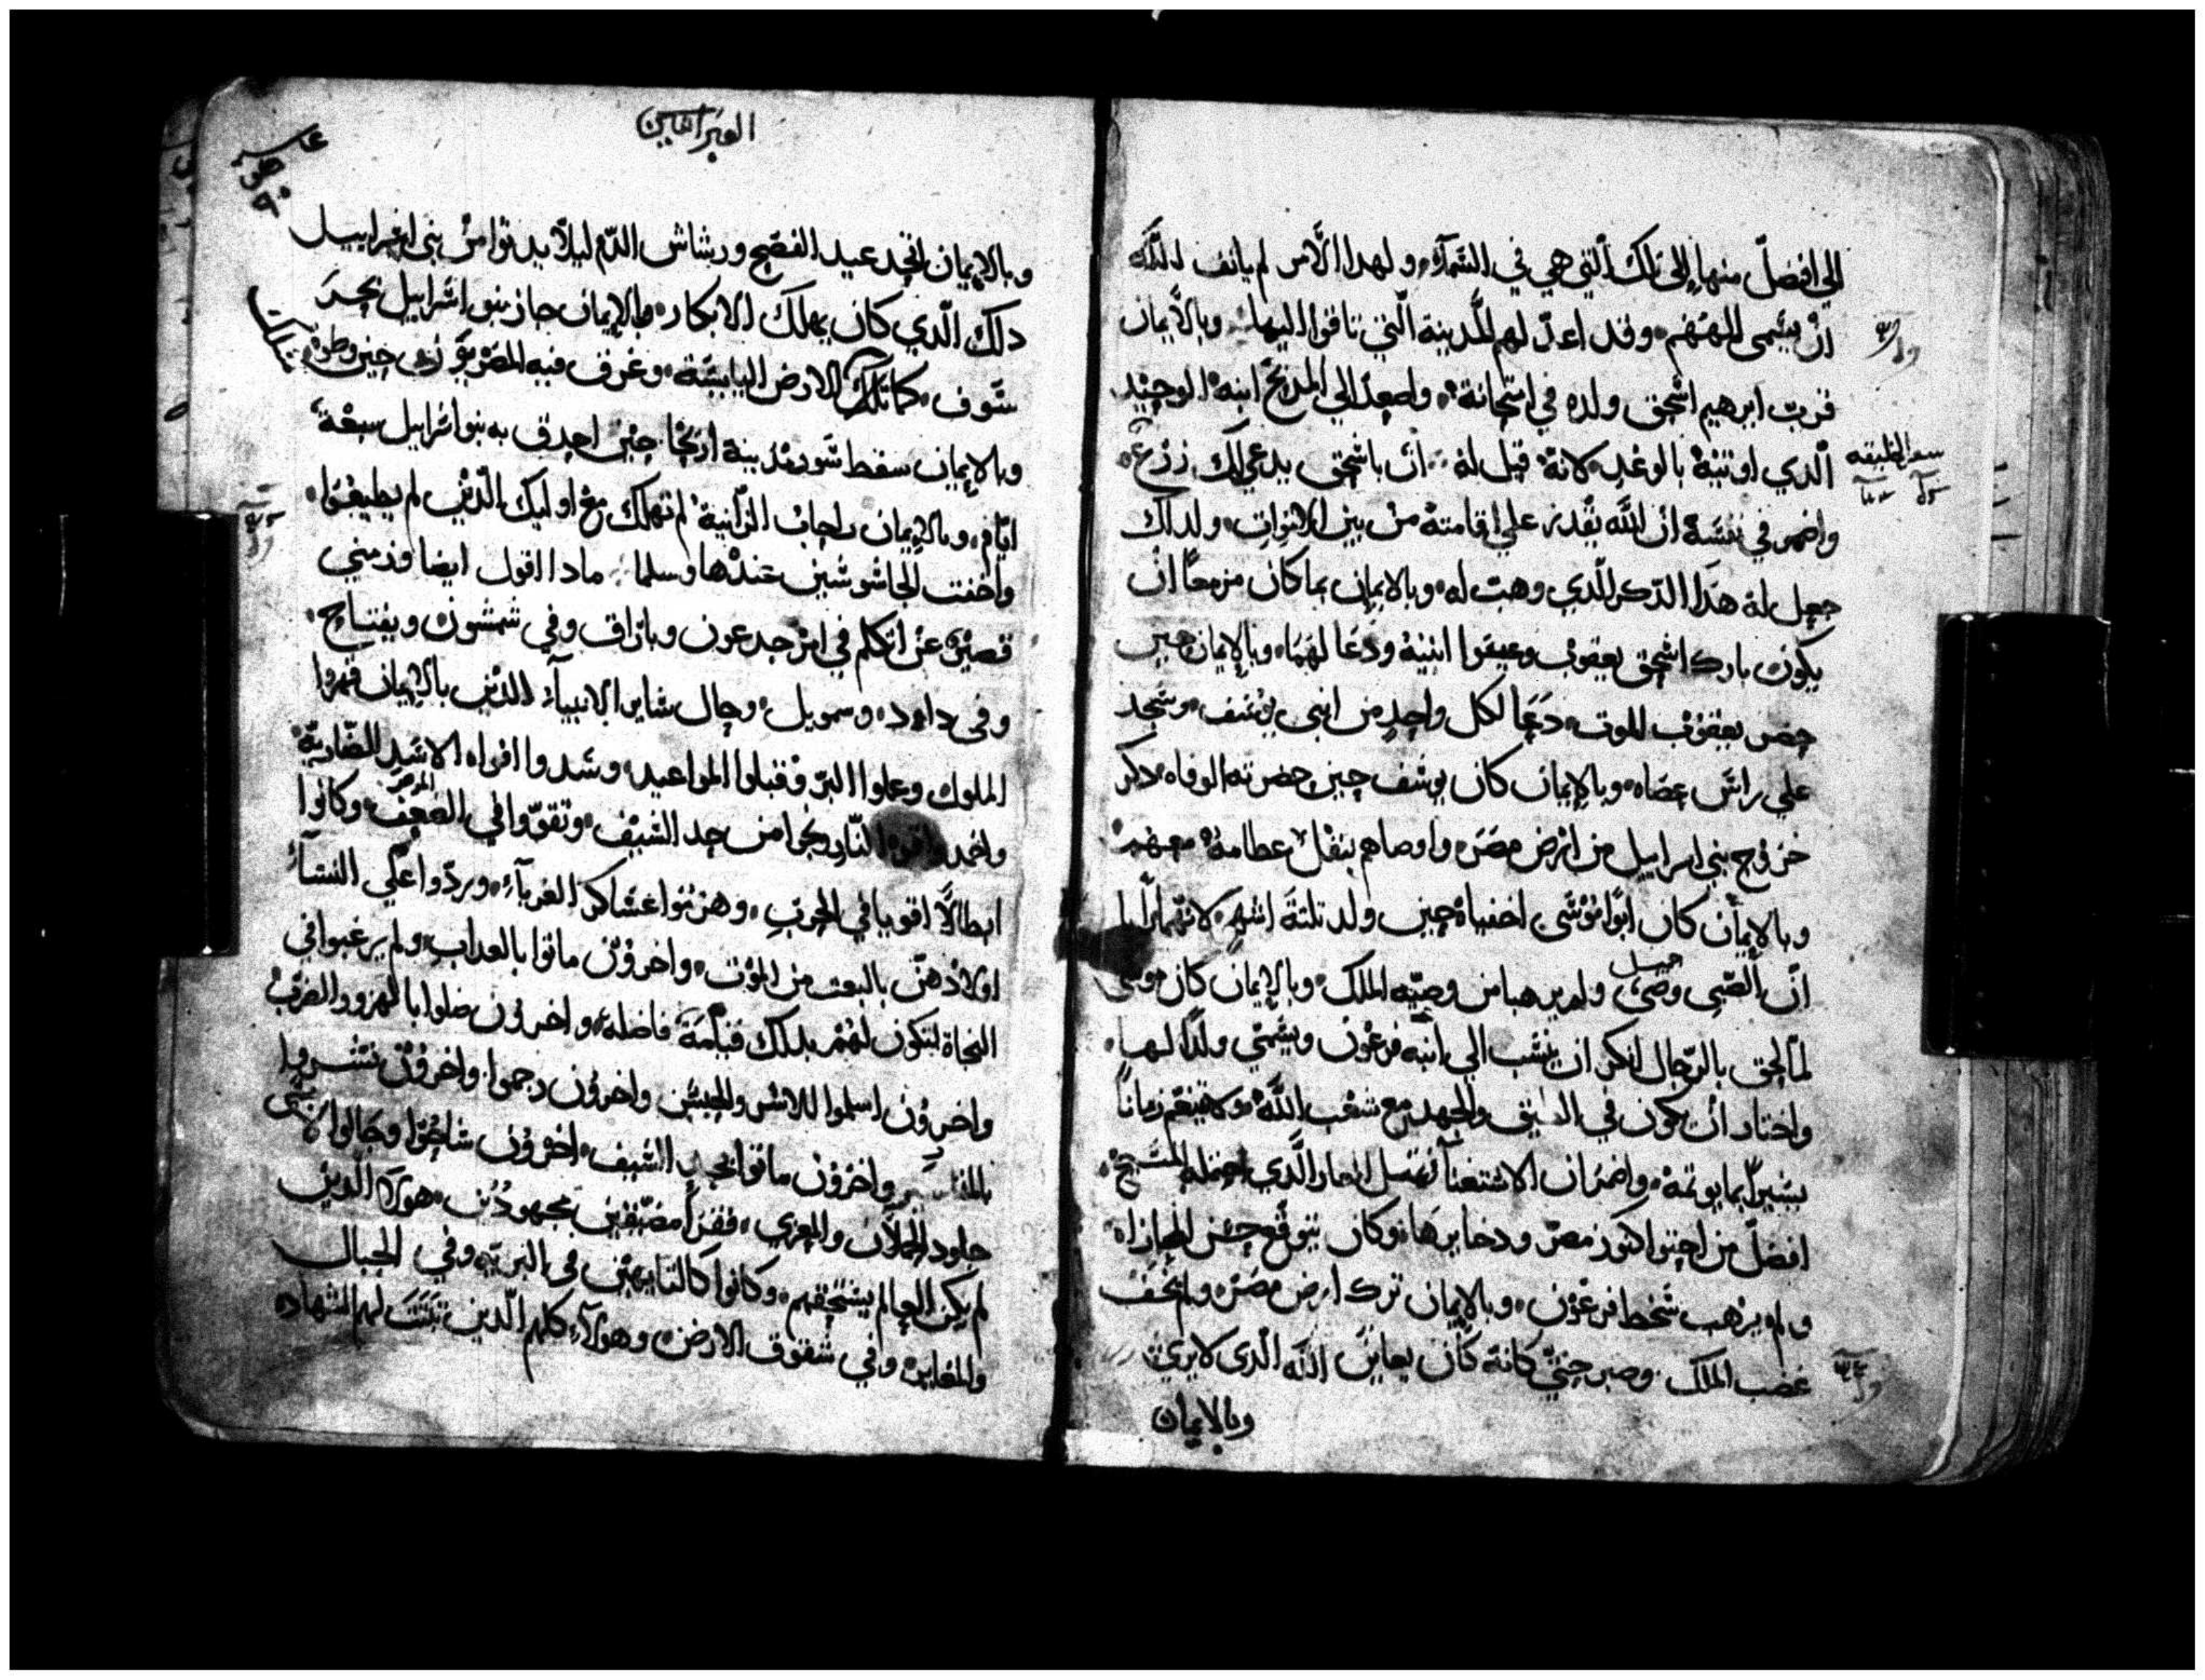 الي افضل منها الى تلك التي هي في السماء ولهدا الامر لم يانف الله
ان يسمى الههم وقد اعد لهم المدينة التي تاقوا اليها وبالايمان
قرب ابرهيم اسحق ولده في امتحانه واصعد الي المدبح ابنه الوحيد
الدي اوتيه بالوعد لانه قيل له ان باسحق يدعي لك زرع
واضمر في نفسه ان الله يقدر علي اقامته من بين الاموات ولدلك
جعل له هدا الدكر الدي وهبت له وبالايمان بما كان مزمعا ان
يكون بارك اسحق يعقوب وعيسوا ابنيه ودعا لهما وبالايمان حين
حضر يعقوب الموت دعا لكل واحد من ابني يوسف وسجد
علي راس عصاه وبالايمان كان يوسف حين حضرته الوفاه دكر
خروج بني اسراييل من ارض مصر واوصاهم بنقل عظامه معهم
وبالايمان كان ابوا موسى اخفياه حين ولد تلتة اشهر لانهما رايا
ان الصبي وضي جميل ولم يرهبا من وصيه الملك وبالايمان كان موسى
لما لحق بالرجال انكر ان ينسب الي ابنه فرعون ويسمي ولدا لها
واختار ان يكون في الضيق والجهد مع شعب الله ولا يتنعم زمانا
يسيرا بما يوتمه واضمر ان الاستغنا العار الدي احتمله المسيح
افضل من احتوا كنوز مصر ودخايرها وكان يتوقع حسن المجازاه
ولم يرهب سخط فرعون وبالايمان ترك ارض مصر ولم يخف
غضب الملك وصبر حتي كانه كان يعاين الله الدي لا يري
وبالايمان
العبرانيين
وبالايمان اتخد عيد الفصح ورشاش الدم ليلا يدنوا من بني اسراييل
دلك الدي كان يهلك الابكار وبالايمان جاز بنو اسراييل بحر
سوف كما تلك الارض اليابسة وغرق فيه المصريون حين وطوه
وبالايمان سقط سور مدينة اريحا حين احدق به بنو اسراييل سبعة
ايام وبالايمان راحاب الزانية لم تهلك مع اوليك الدين لم يطيعوا
واخفت الجاسوسين عندها وسلما مادا اقول ايضا وزمني
قصير عن اتكلم في امر جدعون وباراق وفي شمشون ويفتاح
وفي داود وسمويل وحال ساير الانبياء الدين بالايمان قهروا
الملوك وعملوا البر وقبلوا المواعيد وسدوا افواه الاسد الضارية
واخمدوا قوة النار ونجوا من حد السيف وتقووا في الضعف وكانوا
ابطالا اقويا في الحرب وهزموا عساكر الغرباء وردوا علي النساء
اولادهن بالبعت من الموت واخرون ماتوا بالعداب ولم يرغبوا في
النجاة لتكون لهم بدلك قيامة فاضله واخرون ضلوا بالهزو والضرب
واخرون اسلموا للاسر والحبس واخرون رجموا واخرون نشروا
بالمناشير واخرون ماتوا بحد السيف اخرون ساحوا وجالوا لابسي
جلود الحملان والمعزي فقرا مضيقين مجهودين هولا الدين
لم يكن العالم يستحقهم وكانوا كالتايهين في البريه وفي الجبال
والمغاير وفي شقوق الارض وهولاء كلهم الدين تبتت لهم الشهاده